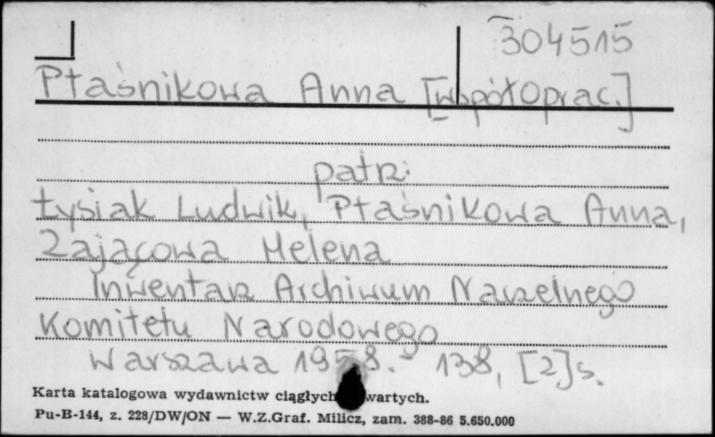 304515
Ptaśnikowa Anna [współoprac.]
patrz:
Łysiak Ludwik, Ptaśnikowa Anna,
Zającowa Helena
Inwentarz Archiwum Naczelnego
Komitetu Narodowego
Warszawa 1978.- 138, [2]s.
Karta katalogowa wydawnictw ciągłych wartych.
Pu-B-144, z. 228/DW/ON — W.Z.Graf. Milicz, zam. 388-86 5.650.000